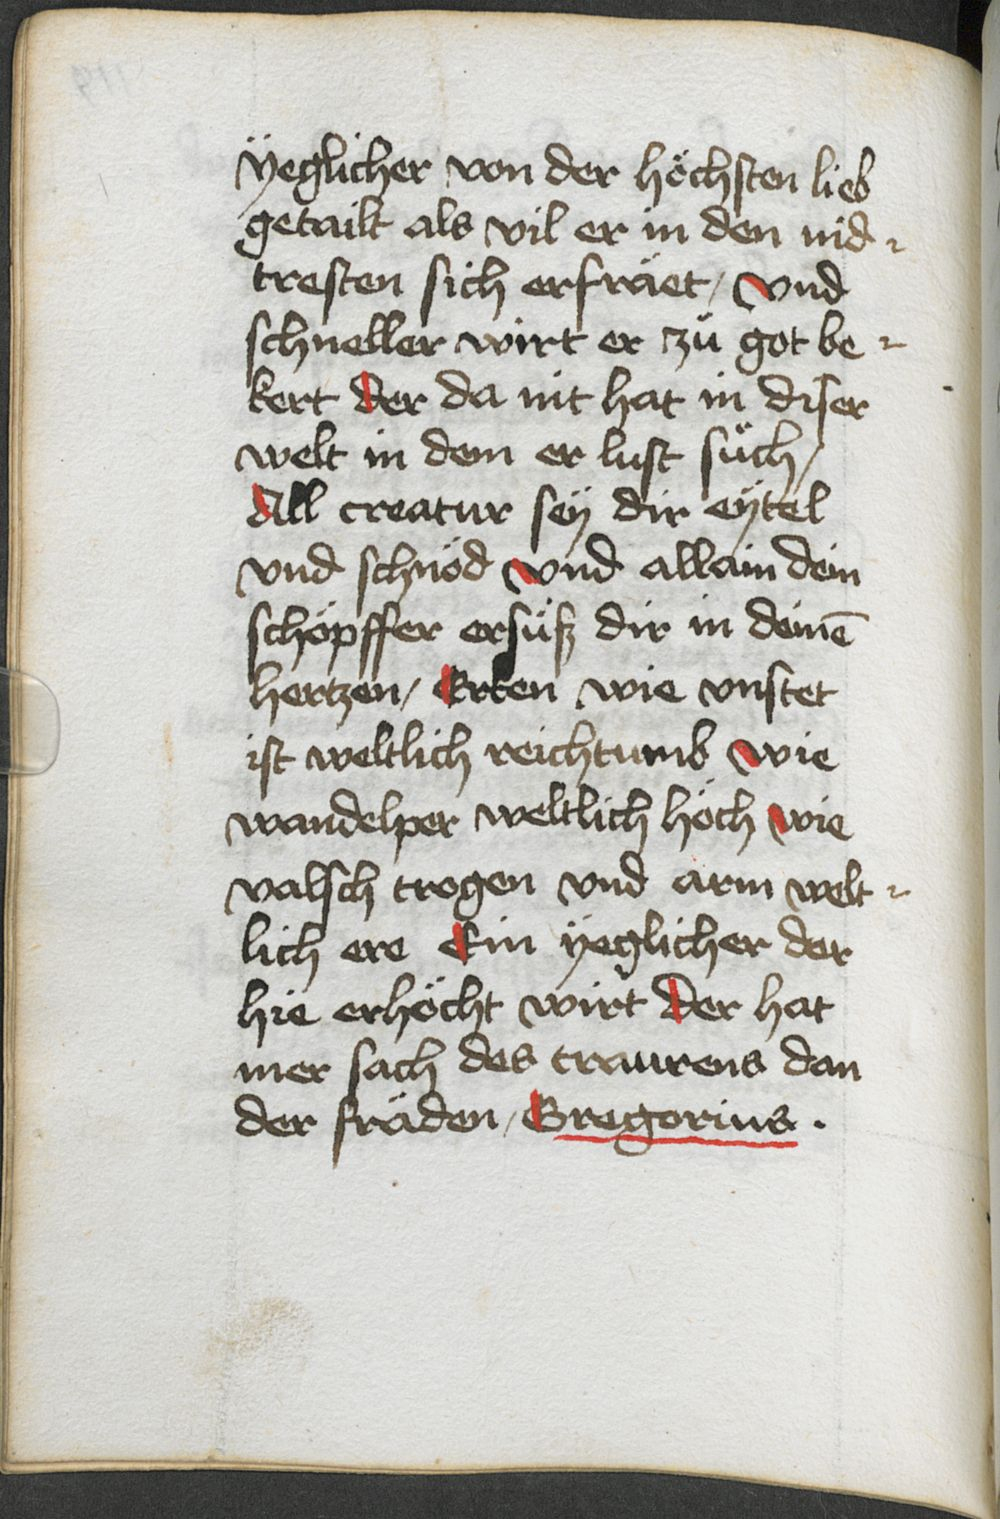 ÿeglicher von der höchsten lieb
getailt als vil er in den nid-
tresten sich erfräet / vnd
schneller wirt er zü got be-
kert der da nit hat in diser
welt in dem er lust süch /
All creatur seÿ dir eÿtel
vnd schnöd vnd allain dein
schöpffer ersüß dir in deinē
hertzen / Erken wie vnstet
ist weltlich reichtumb wie
wandelper weltlich höch wie
valsch trogen vnd arm welt-
lich ere Ein ÿeglicher der
hie erhöcht wirt der hat
mer sach des traurens dan
der fräden / Gregorius .